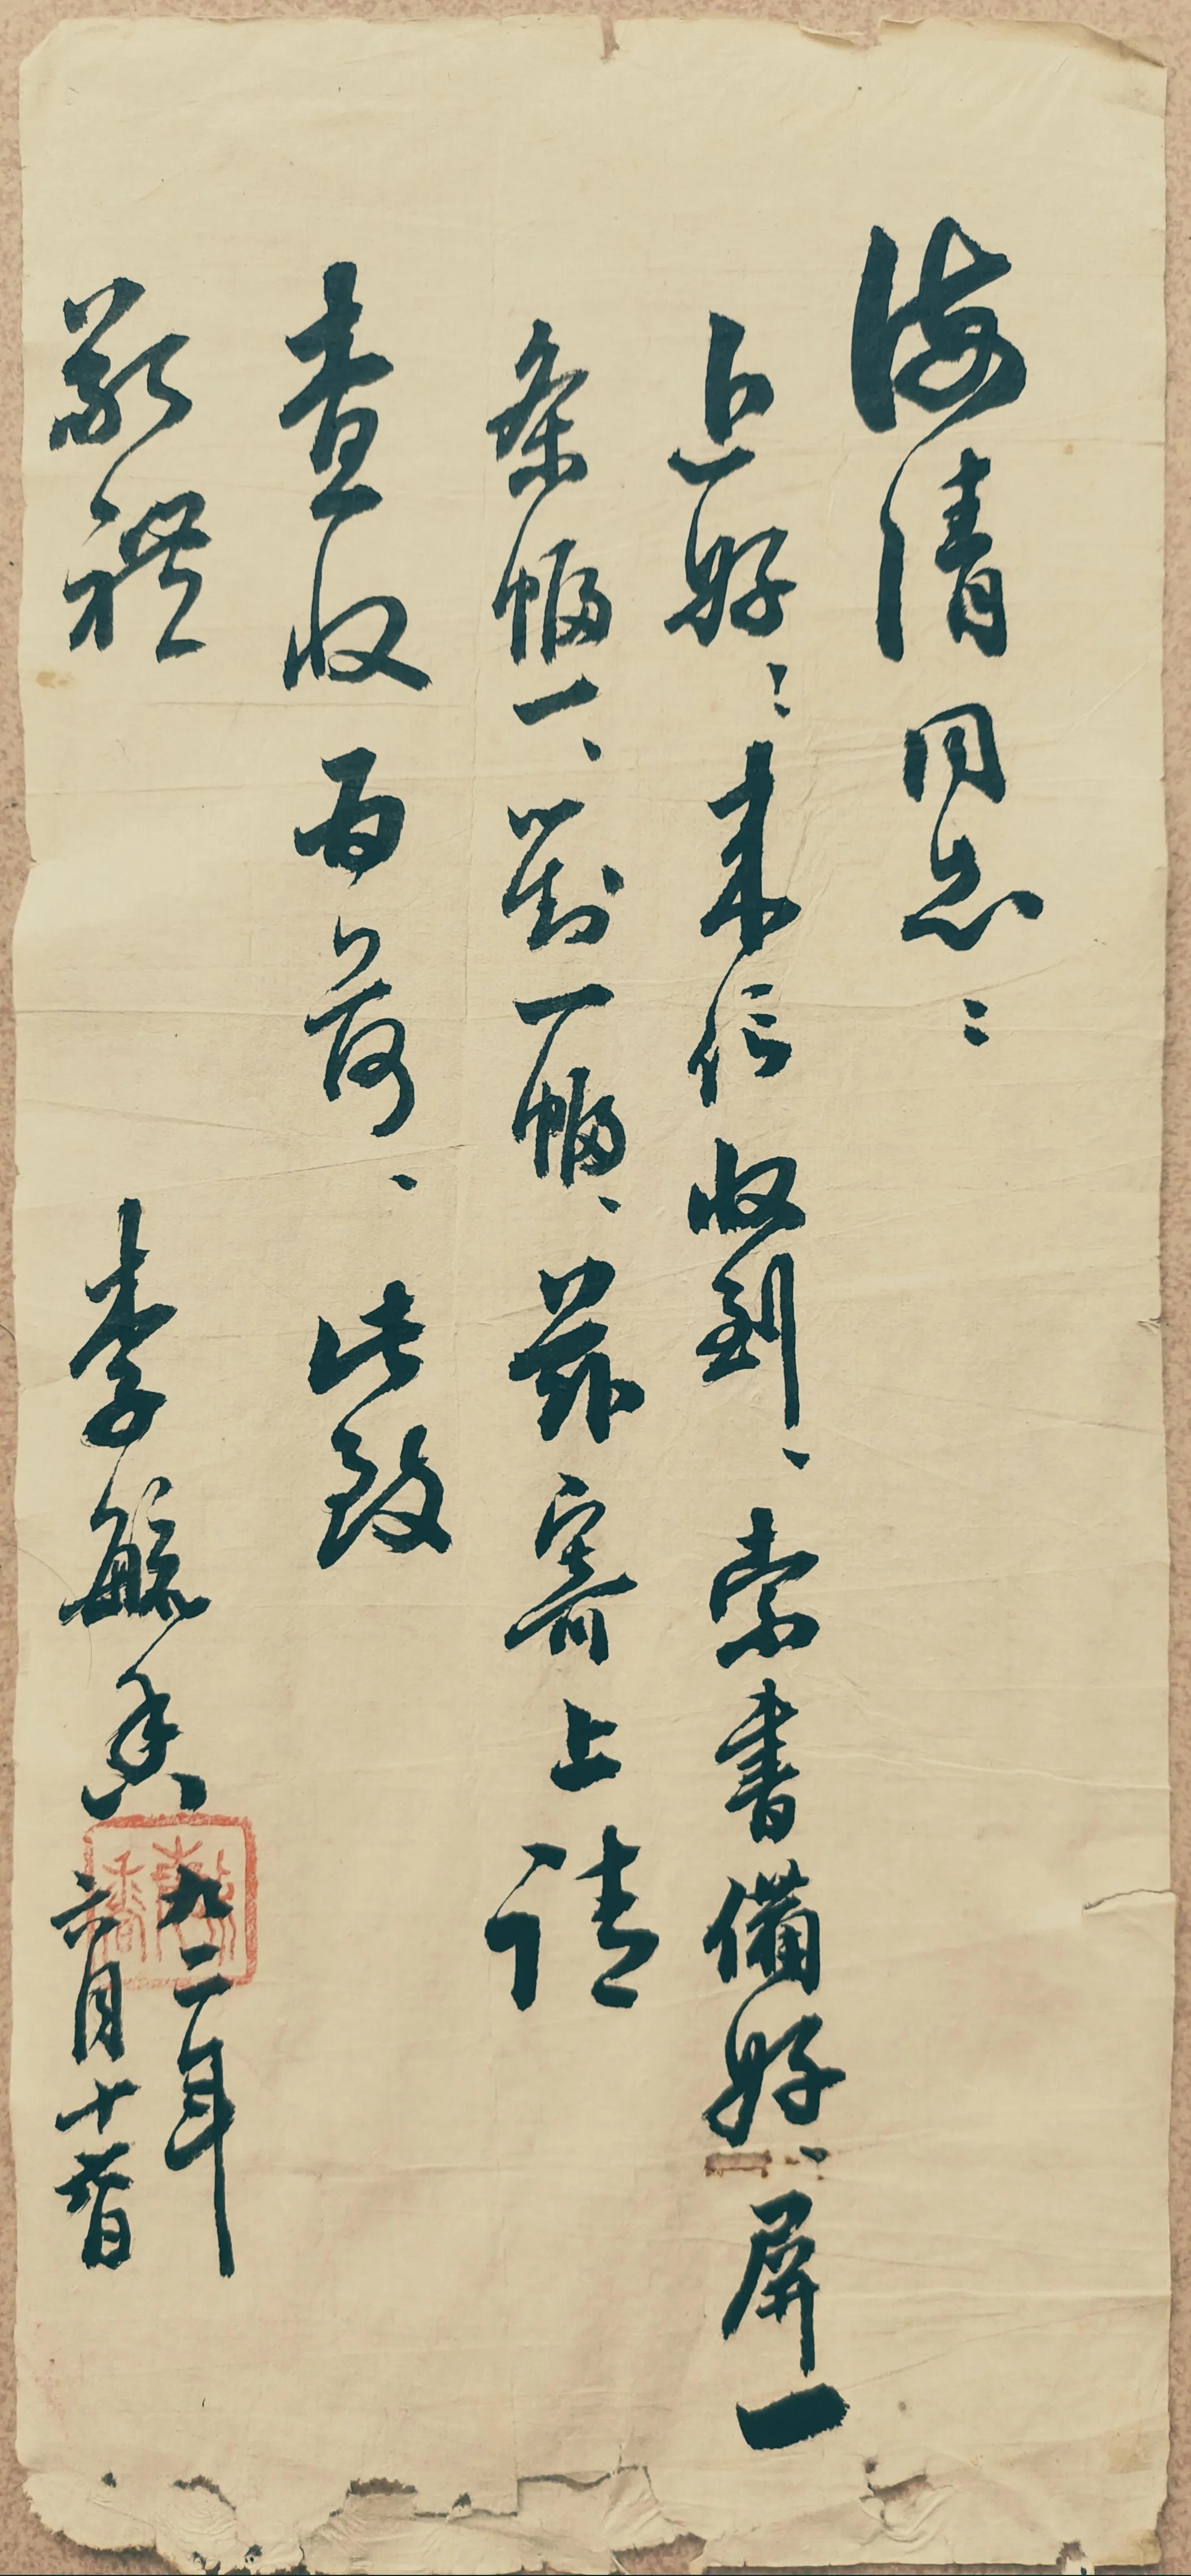 海清同志:
近好:来信收到、索書備好、屏一
条幅一、對一幅、兹寄上请
查收为荷、此致
敬禮
李毓香
九二年
六月十日